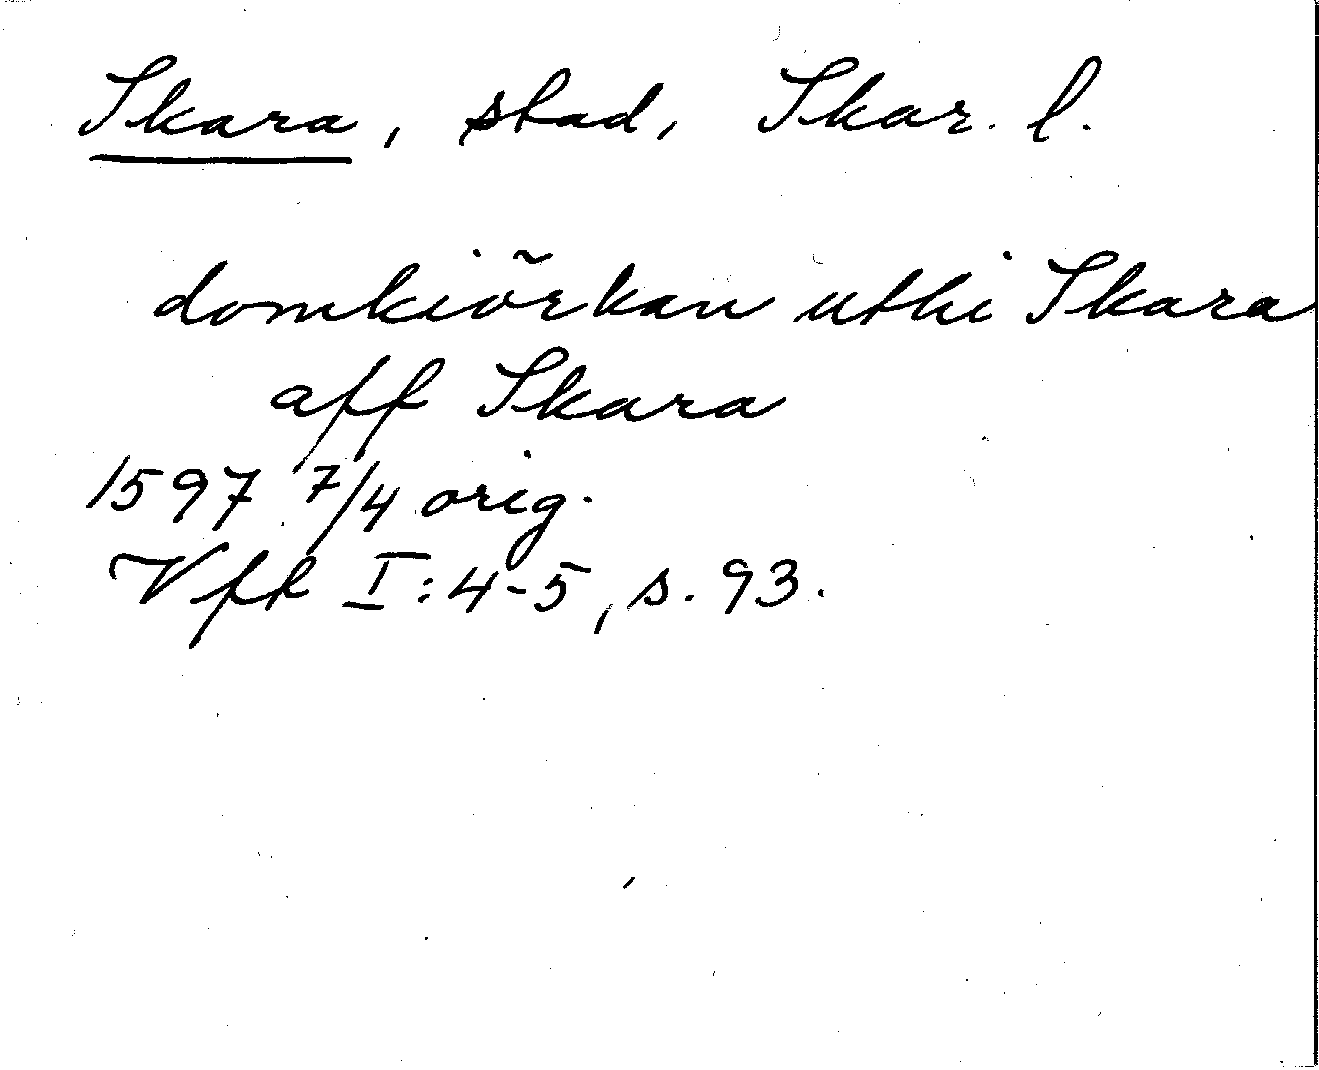 Skara, stad, Skar. l.
domkiörkan uthi Skara
aff Skara
1597 7/4 orig.
Vfft I:4-5, s. 93.